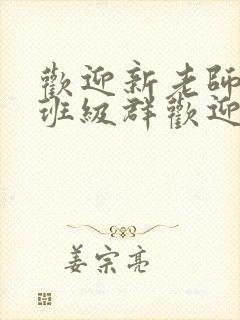 歡迎新老師
班級群歡迎
姜宗亮